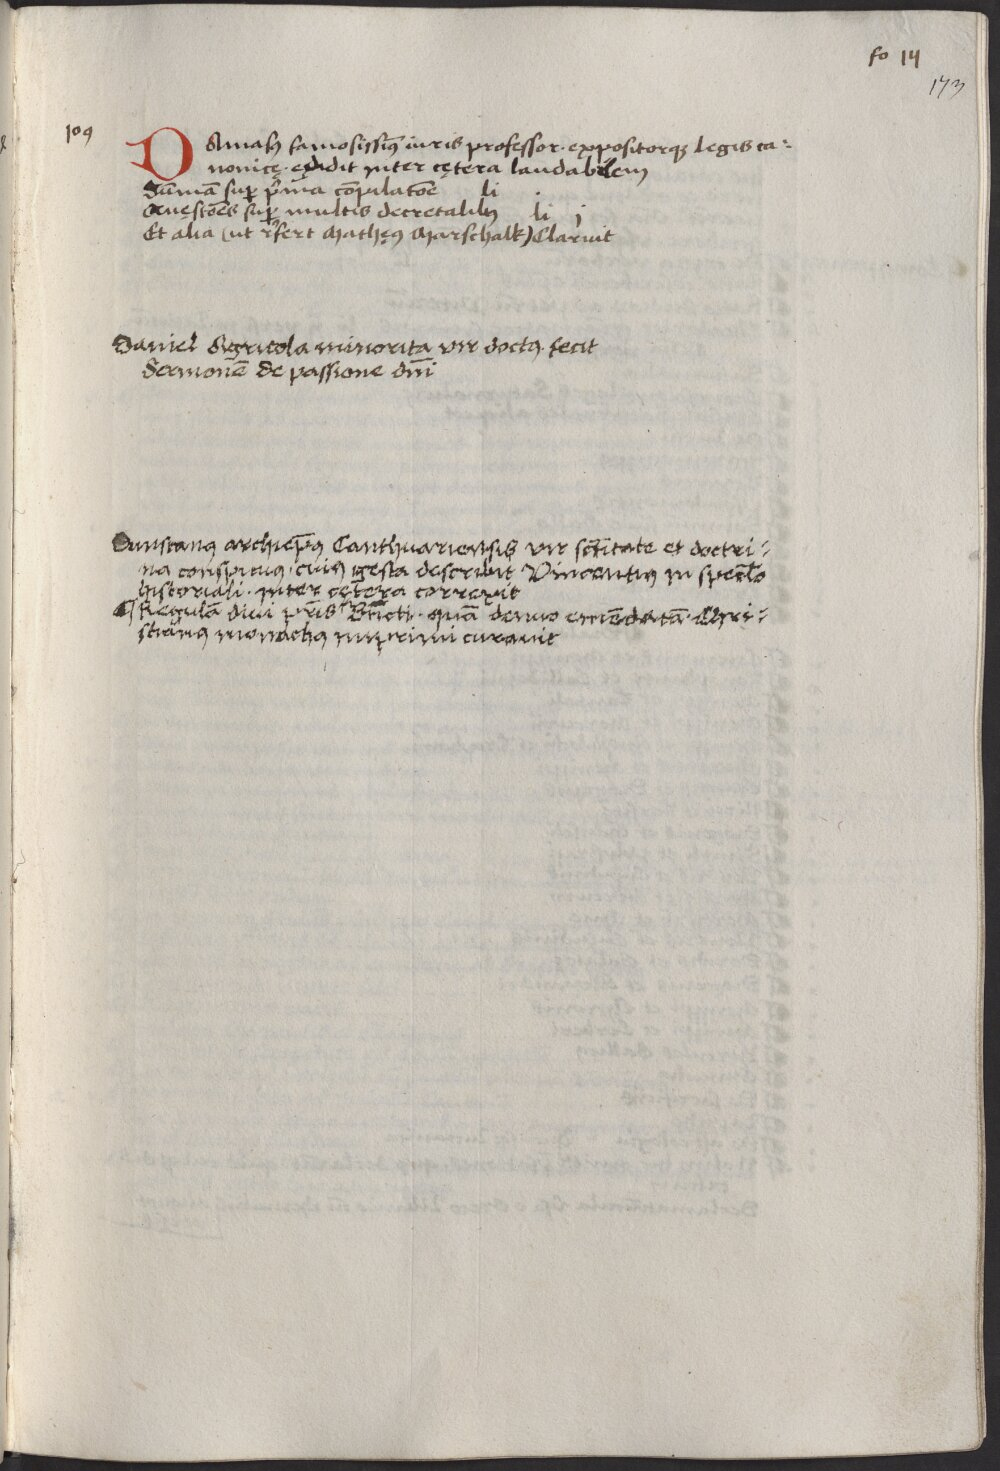 fo 14
173
109
DAmasꝰ famosissim̄ iuris professor· expositorqꝫ legis ca-
nonicę· edidit inter cętera laudabilem
Sūmā sup̄ p̄ma cōpilatōē li
Quęstōēs sup̄ multis decretalibꝰ li j
Et alia (ut rēfert Mathęꝰ Marschalk) Claruit
Daniel Agricola minorita vir doctꝰ fecit
Sermonē de passione dn̄i
Dunstanꝰ archiep̄s Canthuariensis vir sctītate et doctri-
na conspicuus, cuiꝰ gesta describit Vincentiꝰ in specl̄o
historiali· inter cętera correxit
Regulā diui pr̄is Bn̄dicti· quā denuo emēdatā· Chri-
stianꝰ monachꝰ imprimi curauit